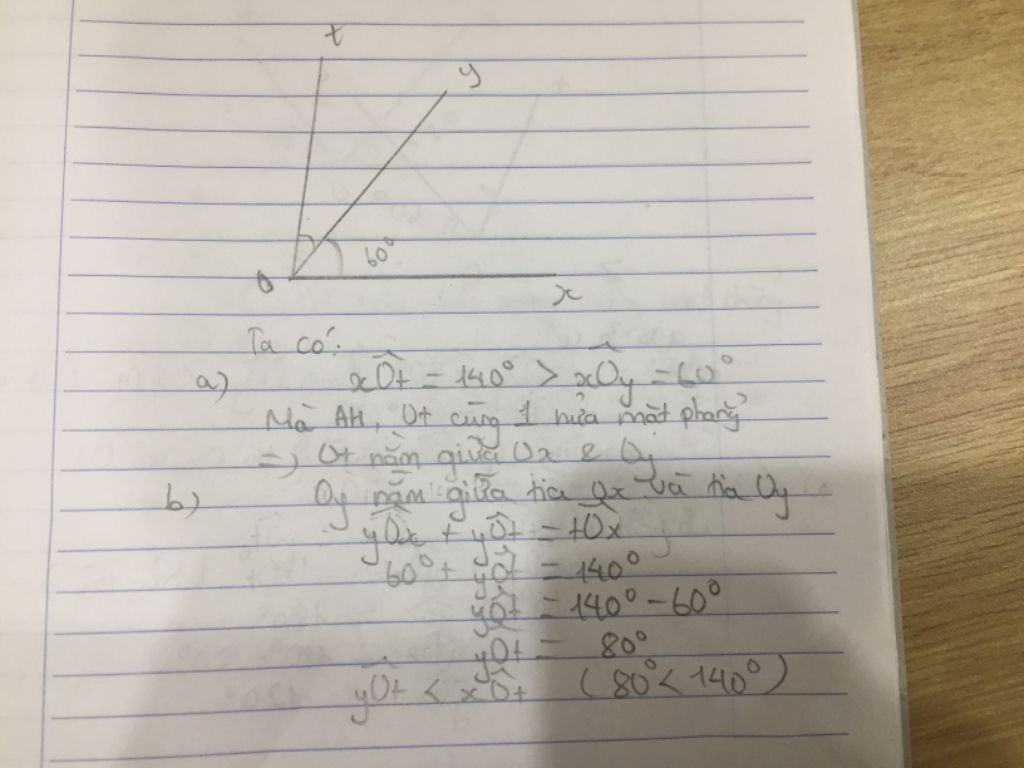 t
y
60°
O
x
Ta có:
a) xÔt = 140° > xÔy = 60°
Mà AH, Ot cùng 1 nửa mặt phẳng
=> Ot nằm giữa Ox & Oy
b) Oy nằm giữa tia Ox và tia Oy
yÔx + yÔt = tÔx
60° + yÔt = 140°
yÔt = 140° - 60°
yÔt = 80°
yÔt < xÔt (80° < 140°)